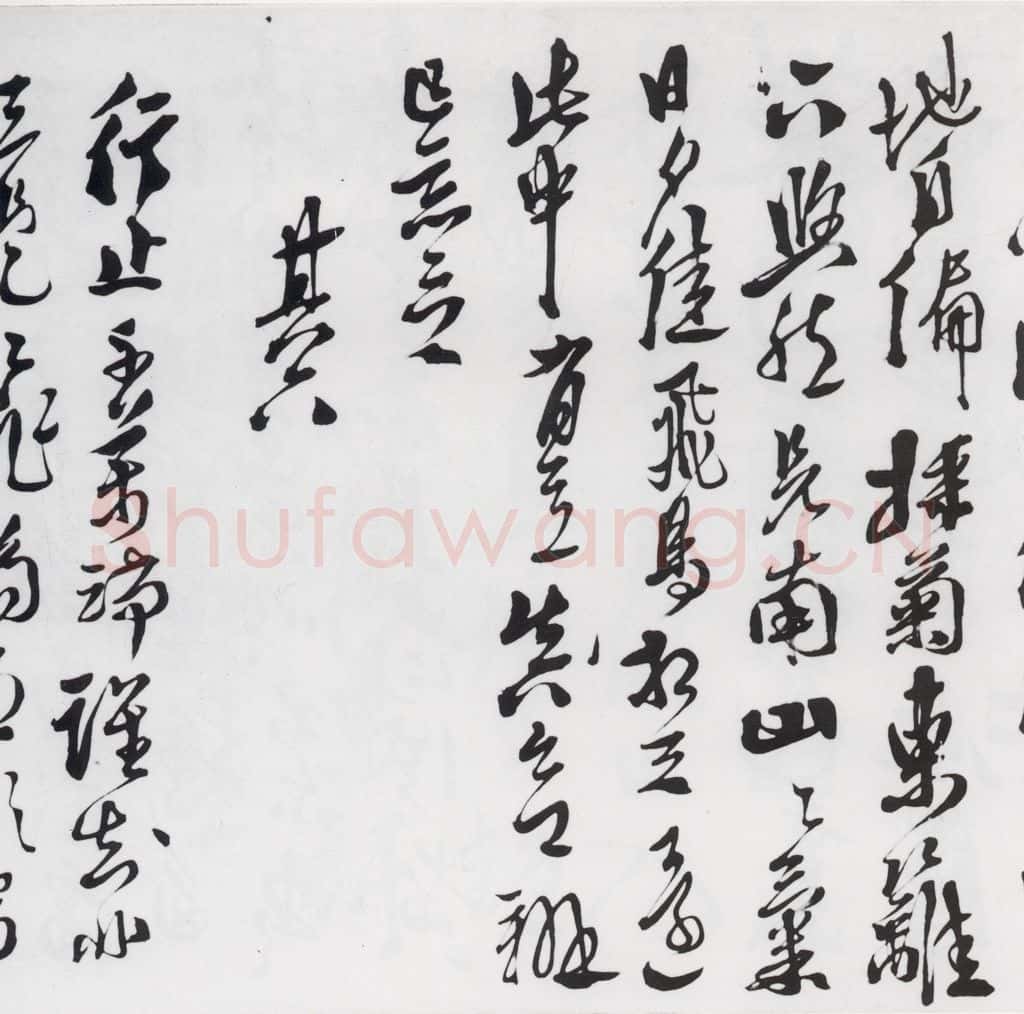 地自偏採菊東籬
下悠然見南山〻氣
日夕佳飛鳥相与還
此中有真意欲辯
已忘言
其六
行止千萬端誰知非
Shufawang.CN